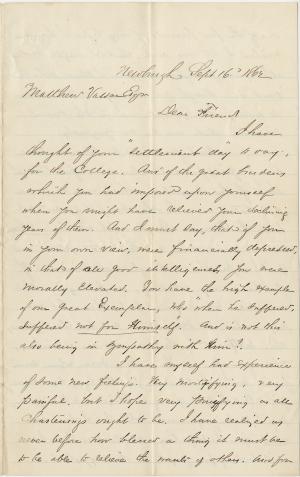 Newburgh Sept 16th 1862
Matthew Vassar Esqr
Dear Friend
I have
thought of your "settlement day" to day,
for the College. And of the great burdens
which you had imposed upon yourself
when you might have relieved your declining
years of them. And I must say, that if you
in your own view, were financially depressed,
in that of all good intelligences you were
morally elevated. You have the high example
of our great Exemplar, who "when he suffered,
suffered not for Himself". And is not this
also being in sympathy with Him?.
I have myself had experience
of some new feelings. Very mortifying, very
painful, but I hope very purifying as all
chastenings ought to be. I have realized as
never before how blessed a thing it must be
to be able to relieve the wants of others. And from